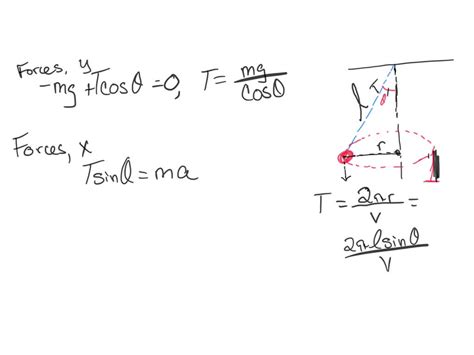 Forces, y
-mg + Tcosθ = 0, T = mg/cosθ
Forces, x
Tsinθ = ma
l T θ
r
T = 2πr/v =
2πlsinθ/v